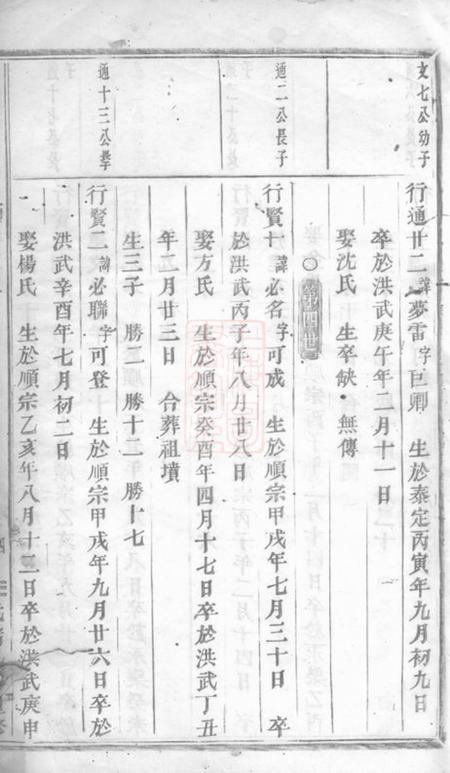 文七公幼子
行通廿二諱夢雷字巨卿　生於泰定丙寅年九月初九日
卒於洪武庚午年二月十一日
娶沈氏　生卒缺　無傳
○第四世
通二公長子
行賢十諱必名字可成　生於順宗甲戌年七月三十日　卒
於洪武丙子年八月廿八日
娶方氏　生於順宗癸酉年四月十七日卒於洪武丁丑
年二月廿三日　合葬祖墳
生三子　勝二　勝十二　勝十七
通十三公學
行賢二諱必聯字可登　生於順宗甲戌年九月廿六日卒於
洪武辛酉年七月初二日
娶楊氏　生於順宗乙亥年八月十二日卒於洪武庚申